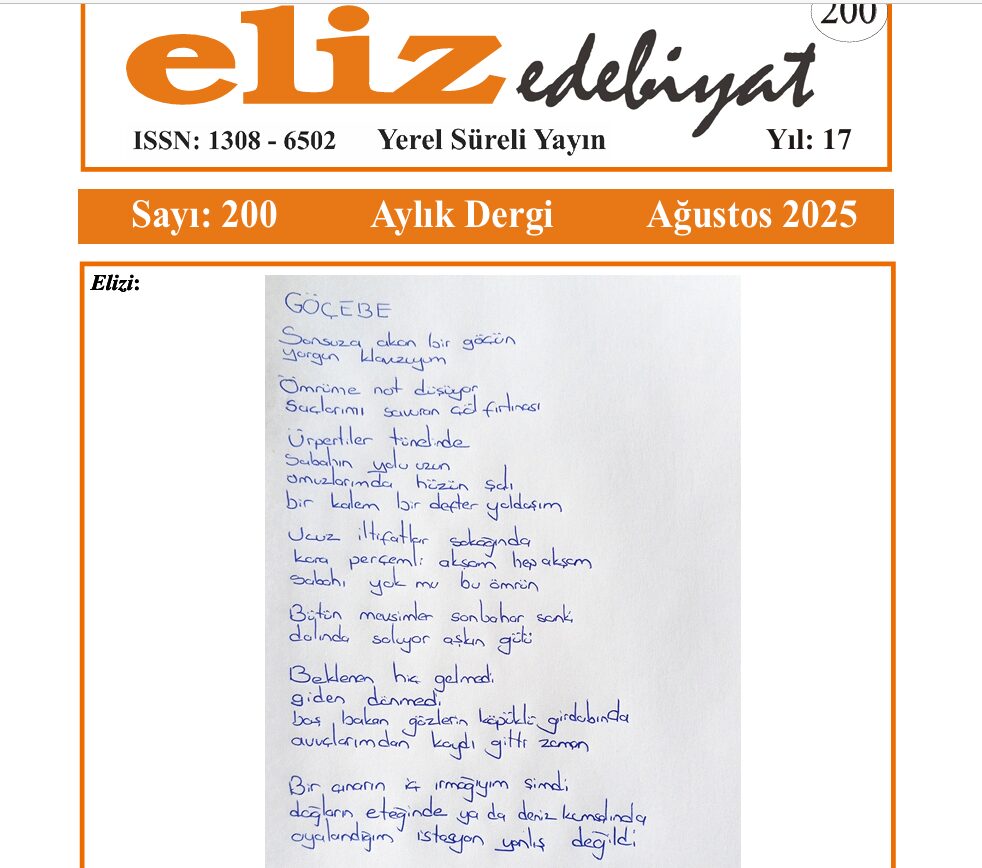 200
eliz edebiyat
ISSN: 1308 - 6502 Yerel Süreli Yayın Yıl: 17
Sayı: 200 Aylık Dergi Ağustos 2025
Elizi:
GÖÇEBE
Sonsuza akan bir göçün
yorgun kılavuzuyum
Ömrüme not düşüyor
saçlarımı savuran çöl fırtınası
Ürpertiler tünelinde
sabahın yolu uzun
omuzlarımda hüzün şalı
bir kalem bir defter yoldaşım
Ucuz iltifatlar sokağında
kara perçemli akşam hep akşam
sabahı yok mu bu ömrün
Bütün mevsimler sonbahar sanki
dalında soluyor aşkın gülü
Beklenen hiç gelmedi
giden dönmedi
boş bakan gözlerin köpüklü girdabında
avuçlarımdan kaydı gitti zaman
Bir çınarın iç ırmağıyım şimdi
dağların eteğinde ya da deniz kumsalında
oyalandığım istasyon yanlış değildi